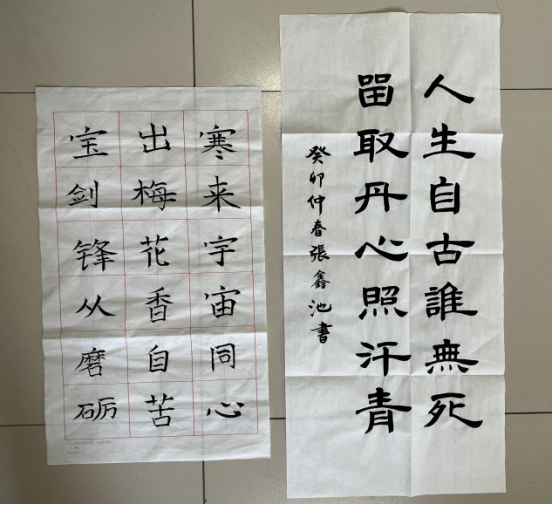 宝剑锋从磨砺
出梅花香自苦
寒来宇宙同心
人生自古誰無死
留取丹心照汗青
癸卯仲春張鑫池書